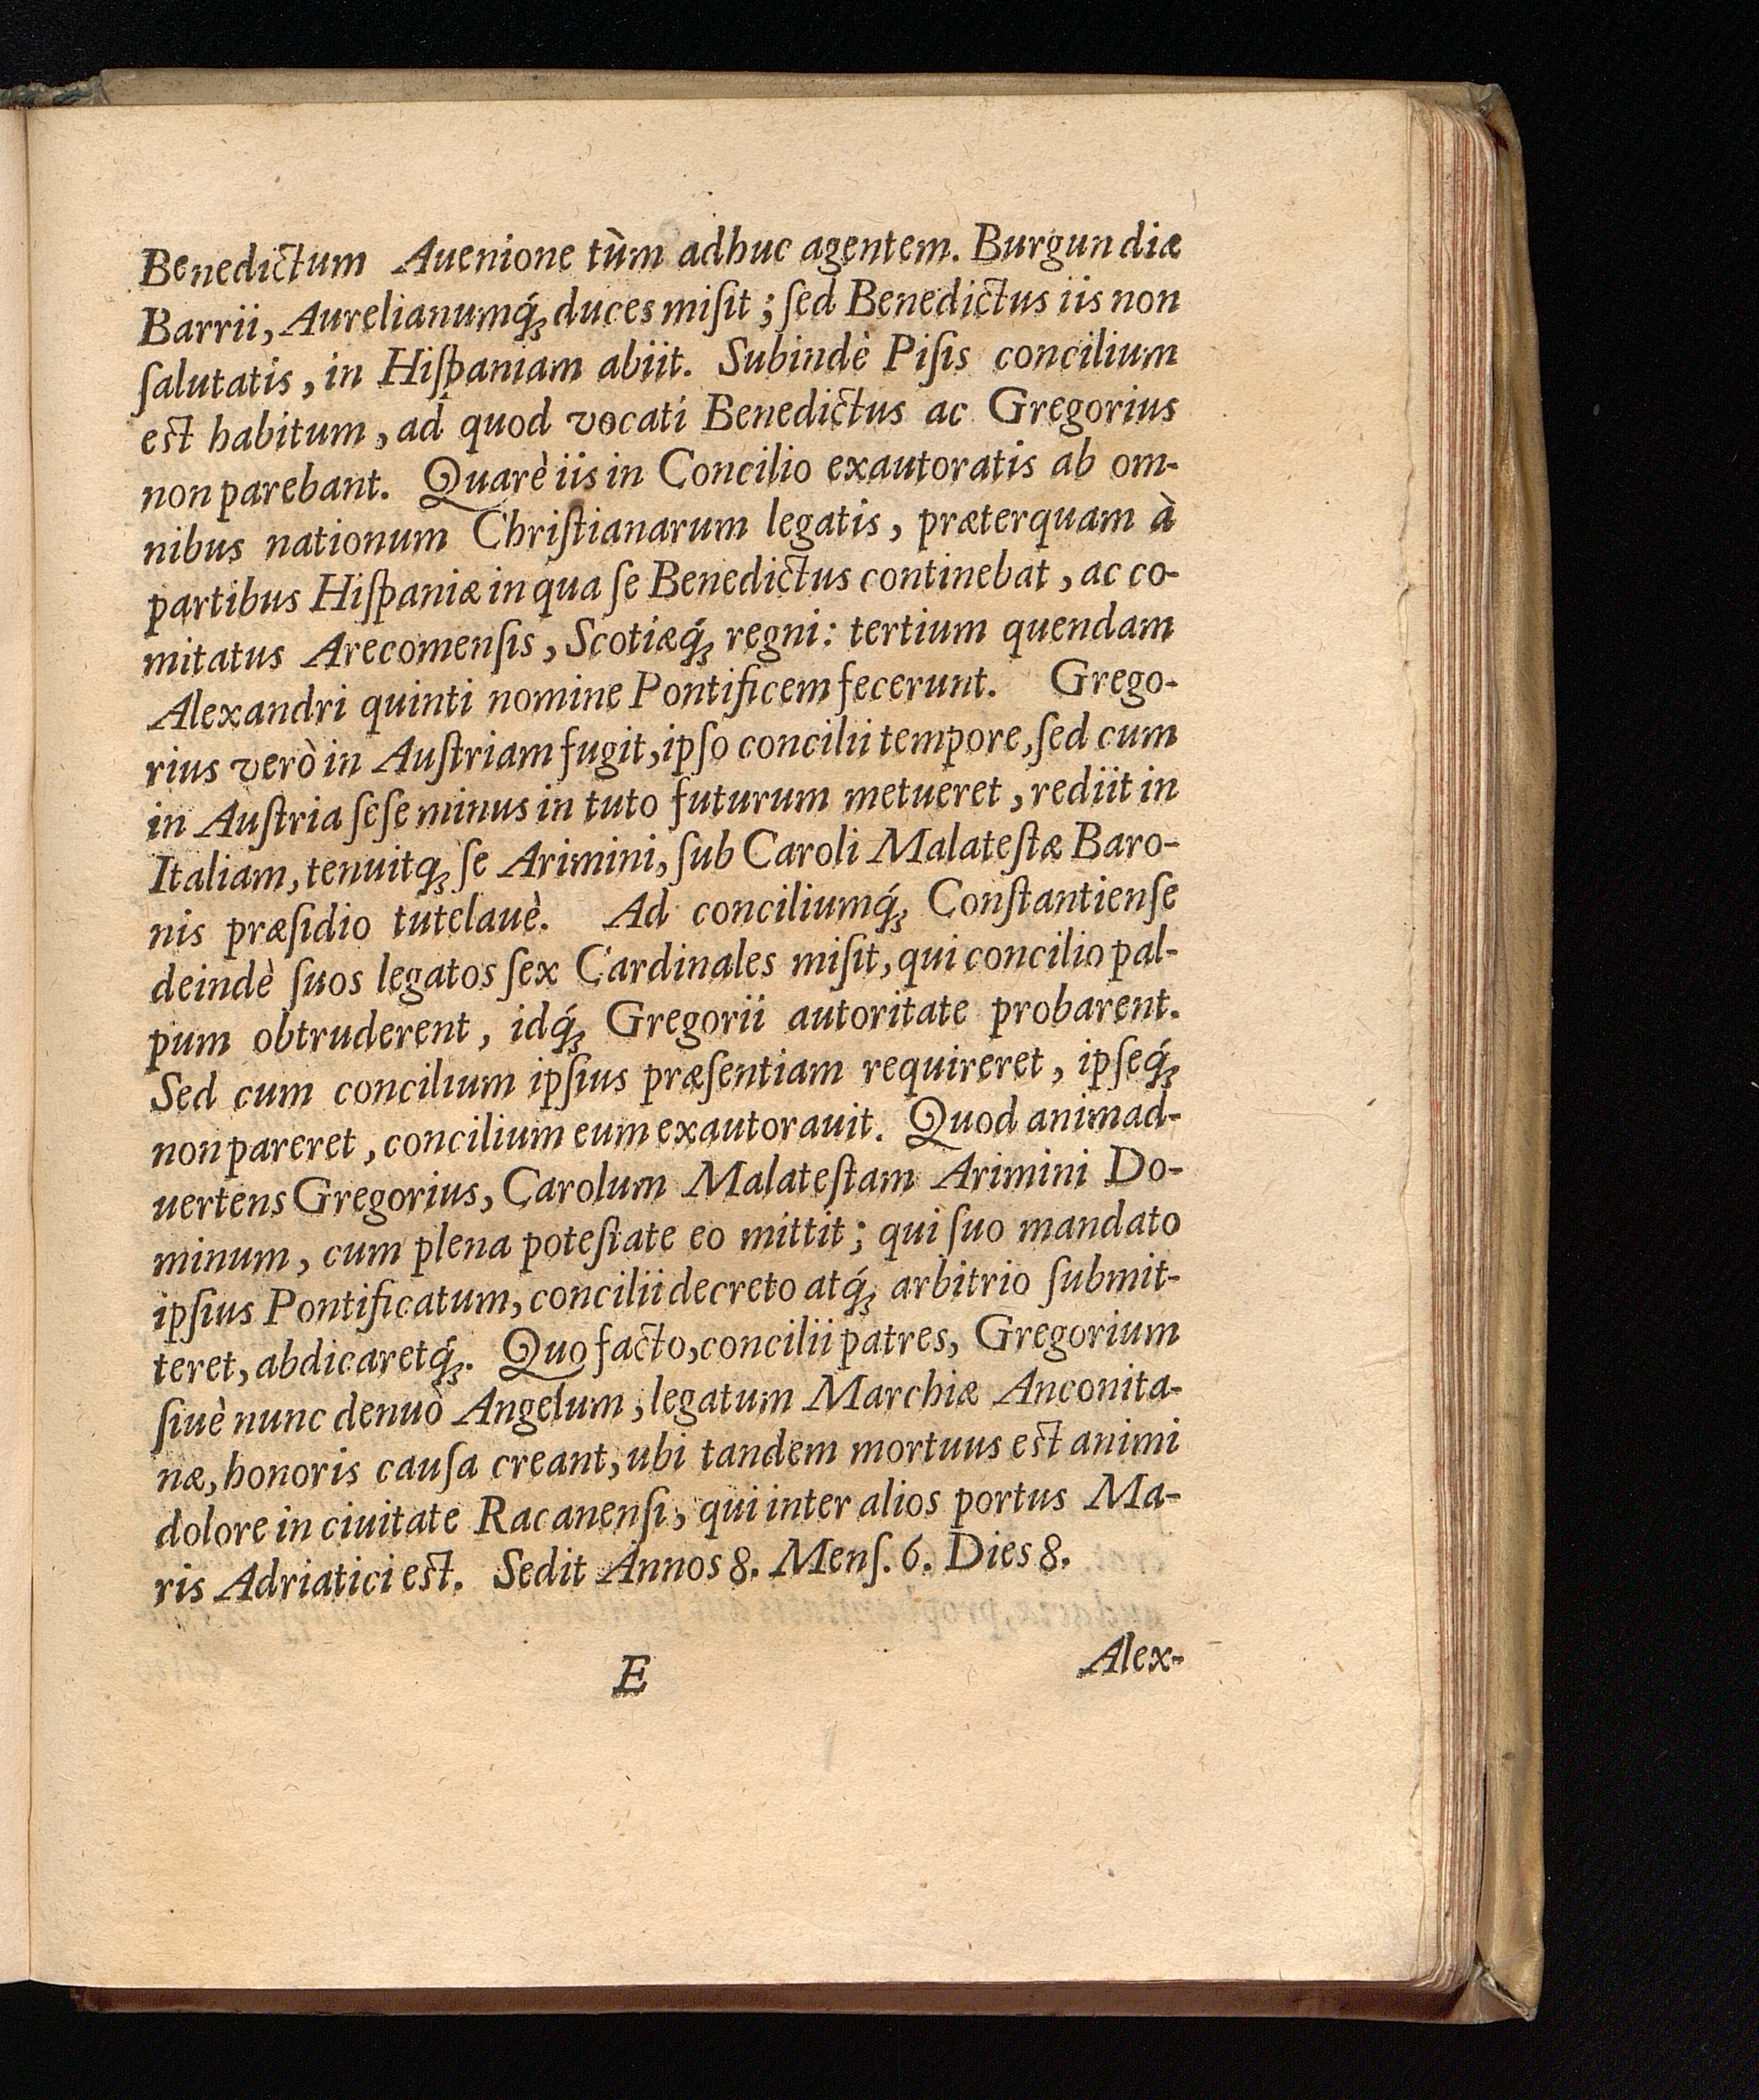 Benedictum Auenione tùm adhuc agentem. Burgundiæ
Barrii, Aurelianumq́ꝫ duces miſit; ſed Benedictus iis non
ſalutatis, in Hiſpaniam abiit. Subindè Piſis concilium
est habitum, ad quod vocati Benedictus ac Gregorius
non parebant. Quarè iis in Concilio exautoratis ab om-
nibus nationum Chriſtianarum legatis, præterquam à
partibus Hiſpaniæ in qua ſe Benedictus continebat, ac co-
mitatus Arecomenſis, Scotiæq́ꝫ regni: tertium quendam
Alexandri quinti nomine Pontificem fecerunt. Grego-
rius verò in Auſtriam fugit, ipſo concilii tempore, ſed cum
in Auſtria ſeſe minus in tuto futurum metueret, rediit in
Italiam, tenuitqꝫ ſe Arimini, ſub Caroli Malateſtæ Baro-
nis præſidio tutelauè. Ad conciliumq́ꝫ Conſtantienſe
deindè ſuos legatos ſex Cardinales miſit, qui concilio pal-
pum obtruderent, idq́ꝫ Gregorii autoritate probarent.
Sed cum concilium ipſius præſentiam requireret, ipſeq́ꝫ
non pareret, concilium eum exautorauit. Quod animad-
uertens Gregorius, Carolum Malateſtam Arimini Do-
minum, cum plena poteſtate eo mittit; qui ſuo mandato
ipſius Pontificatum, concilii decreto atq́ꝫ arbitrio ſubmit-
teret, abdicaretq́ꝫ. Quo facto, concilii patres, Gregorium
ſiuè nunc denuò Angelum, legatum Marchiæ Anconita-
næ, honoris cauſa creant, ubi tandem mortuus est animi
dolore in ciuitate Racanenſi, qui inter alios portus Ma-
ris Adriatici est. Sedit Annos 8. Menſ. 6. Dies 8.
E Alex-